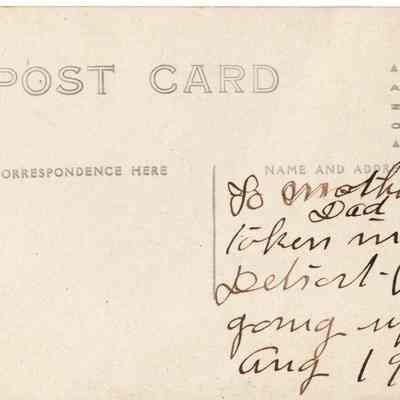 POST CARD
CORRESPONDENCE HERE
NAME AND ADDR
To Moth
Dad
taken in
Detroit-
going up
Aug 19